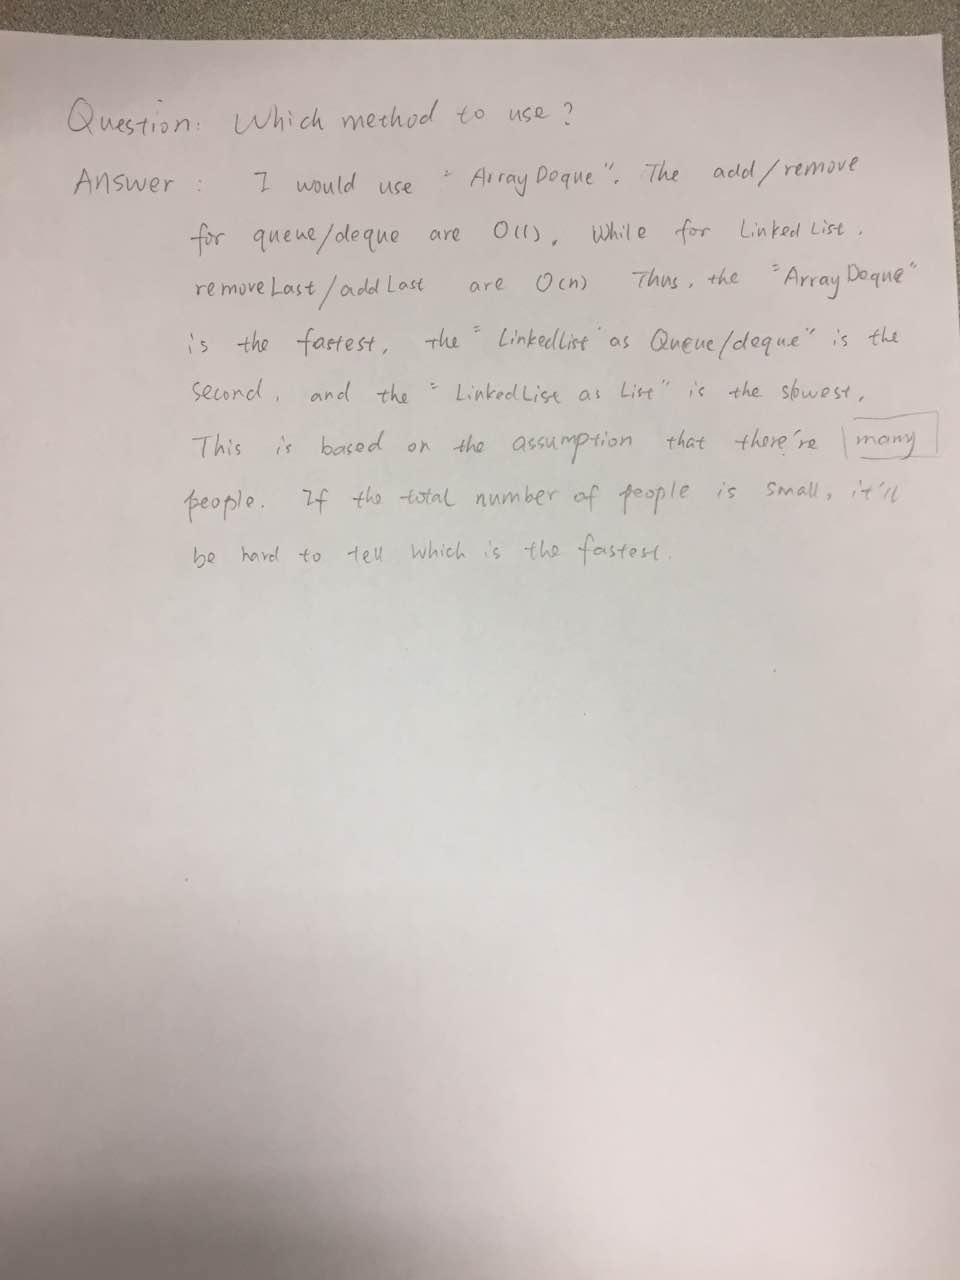 Question: Which method to use?
Answer: I would use "ArrayDeque". The add/remove
for queue/deque are O(1), While for Linked List,
removeLast/addLast are O(n) Thus, the "ArrayDeque"
is the fastest, the "LinkedList as Queue/deque" is the
second, and the "LinkedList as List" is the slowest,
This is based on the assumption that there're many
people. If the total number of people is small, it'll
be hard to tell which is the fastest.